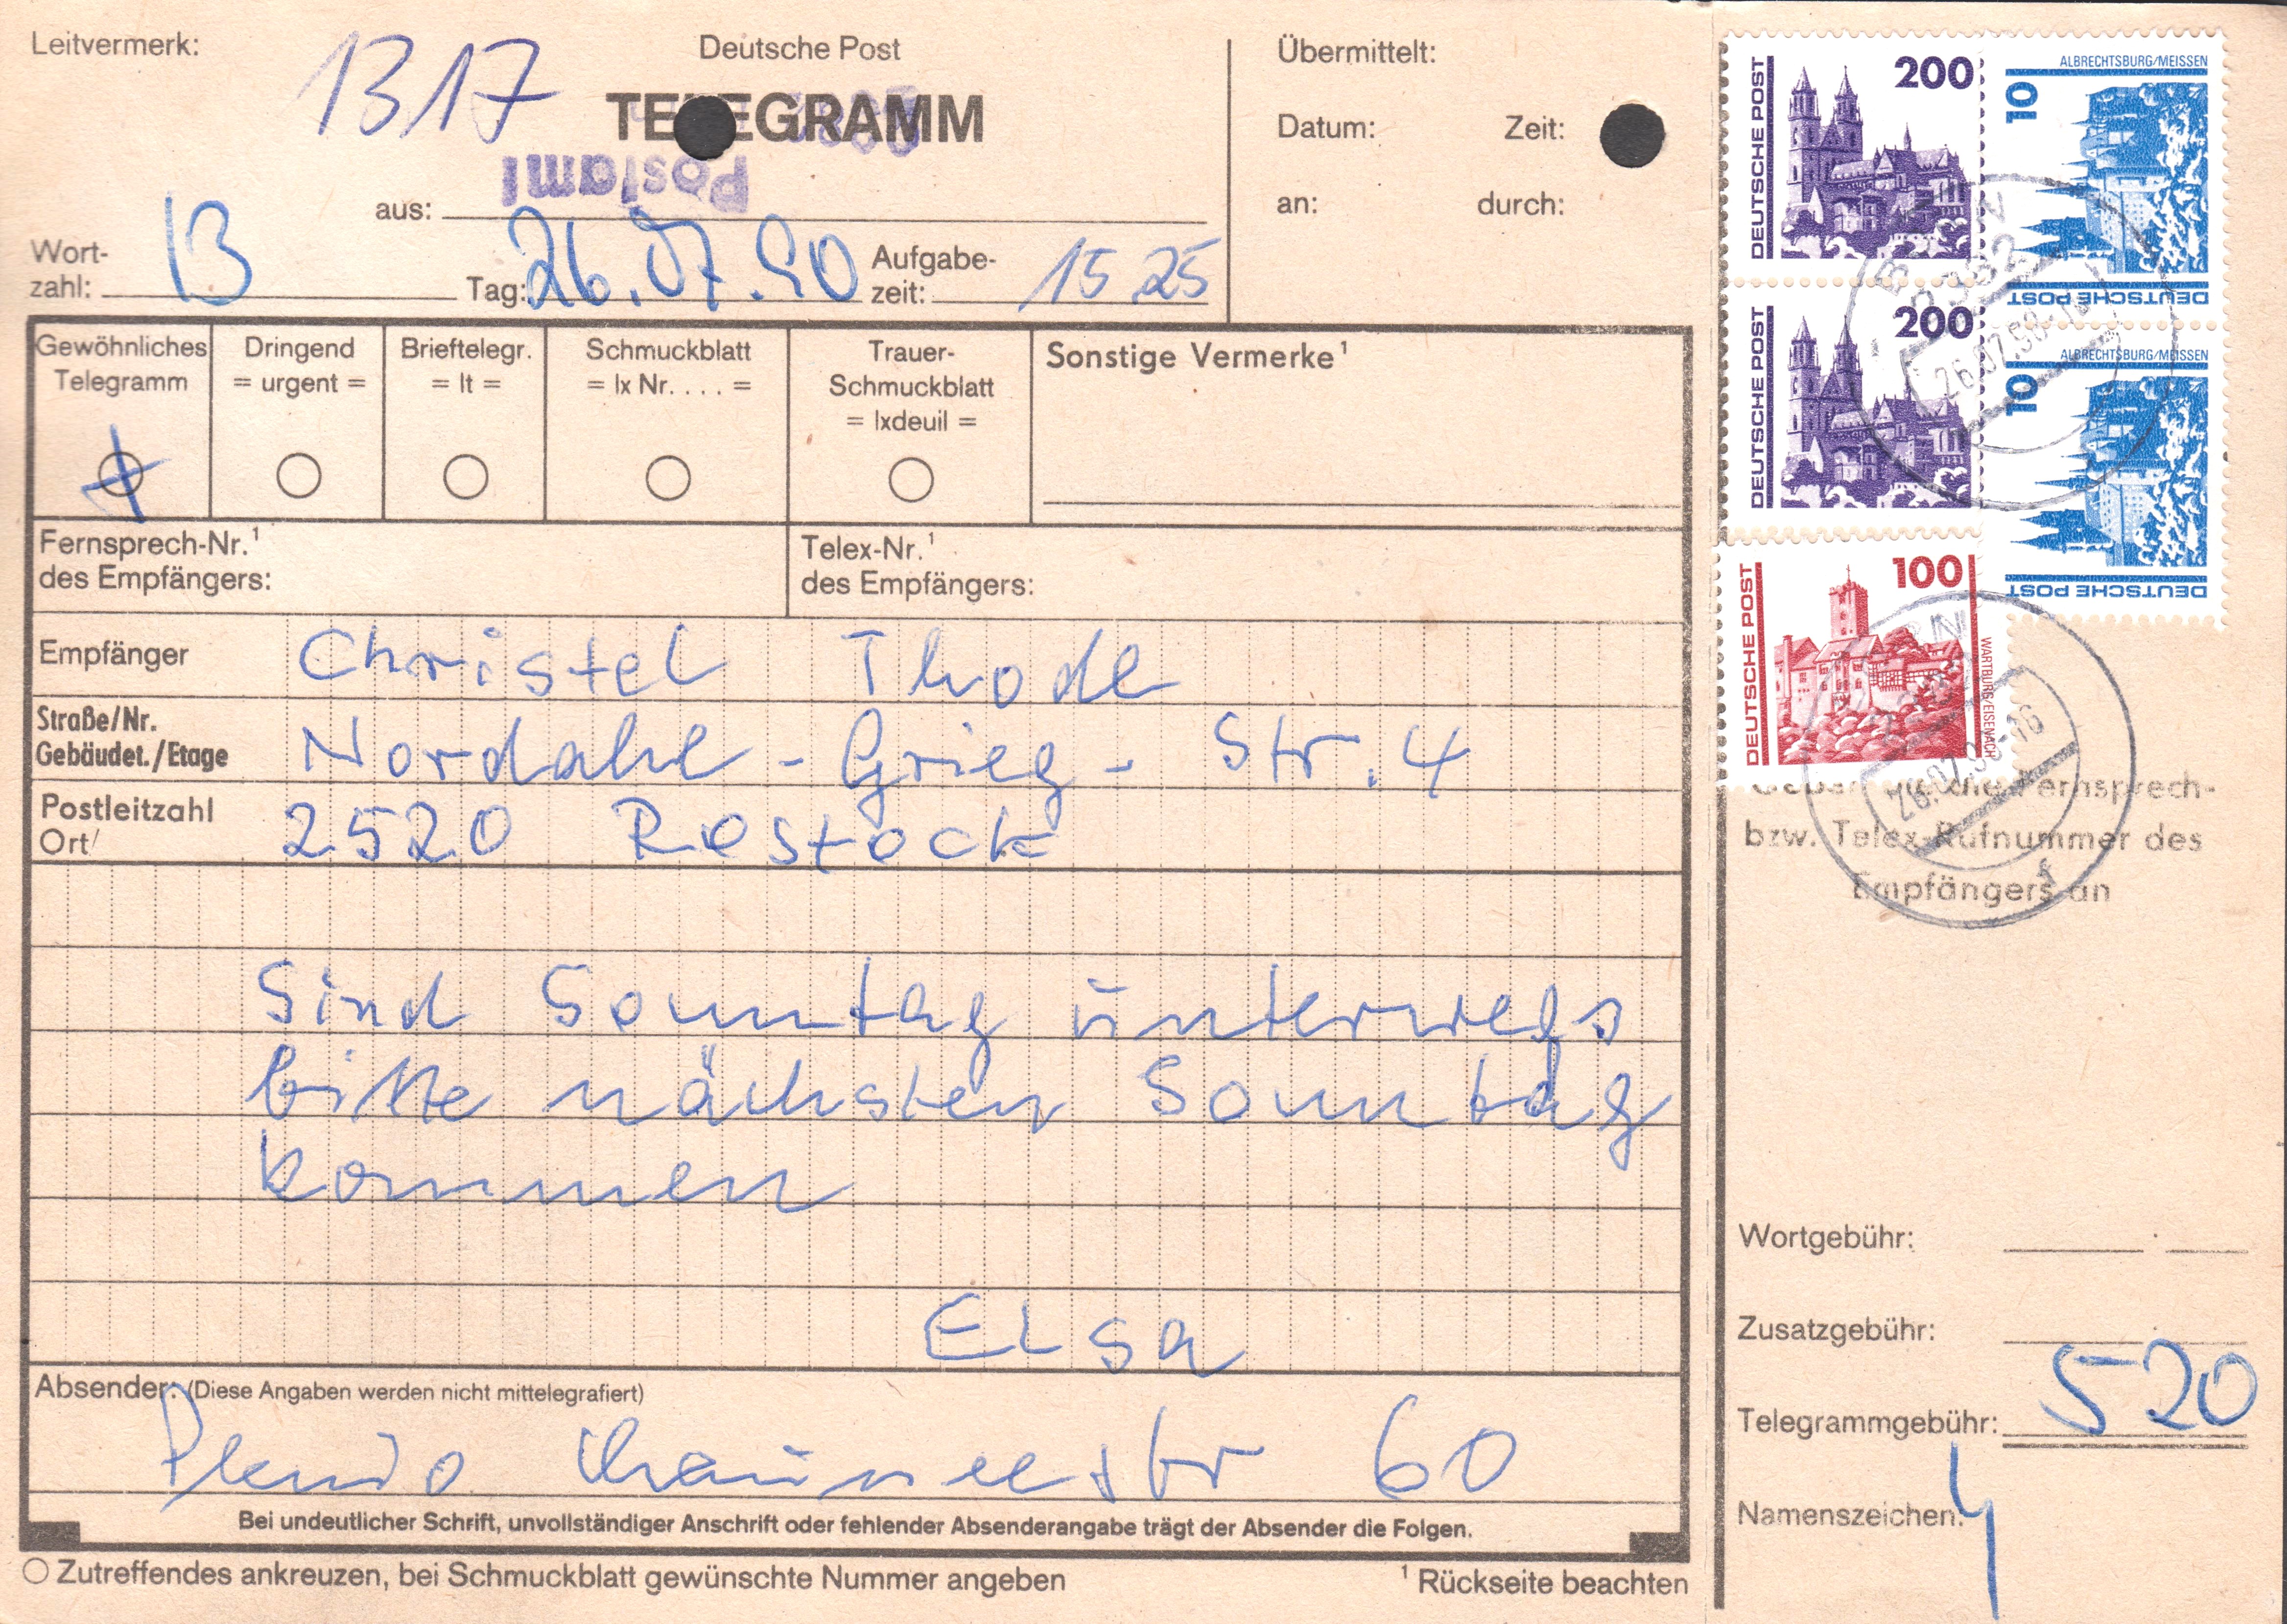 Leitvermerk:
1317
Deutsche Post
TELEGRAMM
Postamt
aus:
Wort-
zahl: 13
Tag: 26.07.90
Aufgabe-
zeit: 15 25
Übermittelt:
Datum: Zeit:
an: durch:
Gewöhnliches
Telegramm
Dringend
= urgent =
Brieftelegr.
= lt =
Schmuckblatt
= lx Nr. . . . =
Trauer-
Schmuckblatt
= lxdeuil =
Sonstige Vermerke¹
Fernsprech-Nr.¹
des Empfängers:
Telex-Nr.¹
des Empfängers:
Empfänger Christel Thode
Straße/Nr.
Gebäudet./Etage Nordahl-Grieg-Str. 4
Postleitzahl
Ort/ 2520 Rostock
Sind Sonntag unterwegs
bitte nächsten Sonntag
kommen
Elsa
Absender: (Diese Angaben werden nicht mittelegrafiert)
60
Bei undeutlicher Schrift, unvollständiger Anschrift oder fehlender Absenderangabe trägt der Absender die Folgen.
Zutreffendes ankreuzen, bei Schmuckblatt gewünschte Nummer angeben
¹ Rückseite beachten
DEUTSCHE POST 200
ALBRECHTSBURG/MEISSEN 10 DEUTSCHE POST
DEUTSCHE POST 200
ALBRECHTSBURG/MEISSEN 10 DEUTSCHE POST
DEUTSCHE POST 100 WARTBURG/EISENACH
Fernsprech-
bzw. Telex-Rufnummer des
Empfängers an
Wortgebühr:
Zusatzgebühr:
Telegrammgebühr: 520
Namenszeichen: